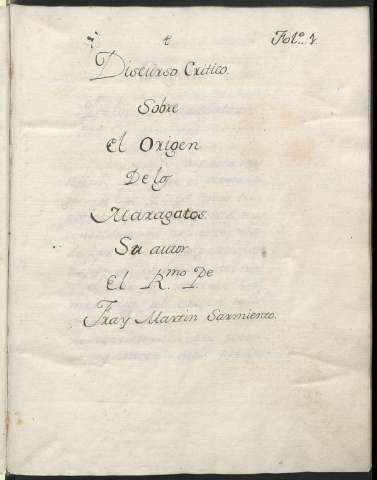 Fol.º 1.
Discurso Critico.
Sobre
El Origen
De los
Maragatos.
Su autor
El R.mo P.e
Fray Martin Sarmiento.